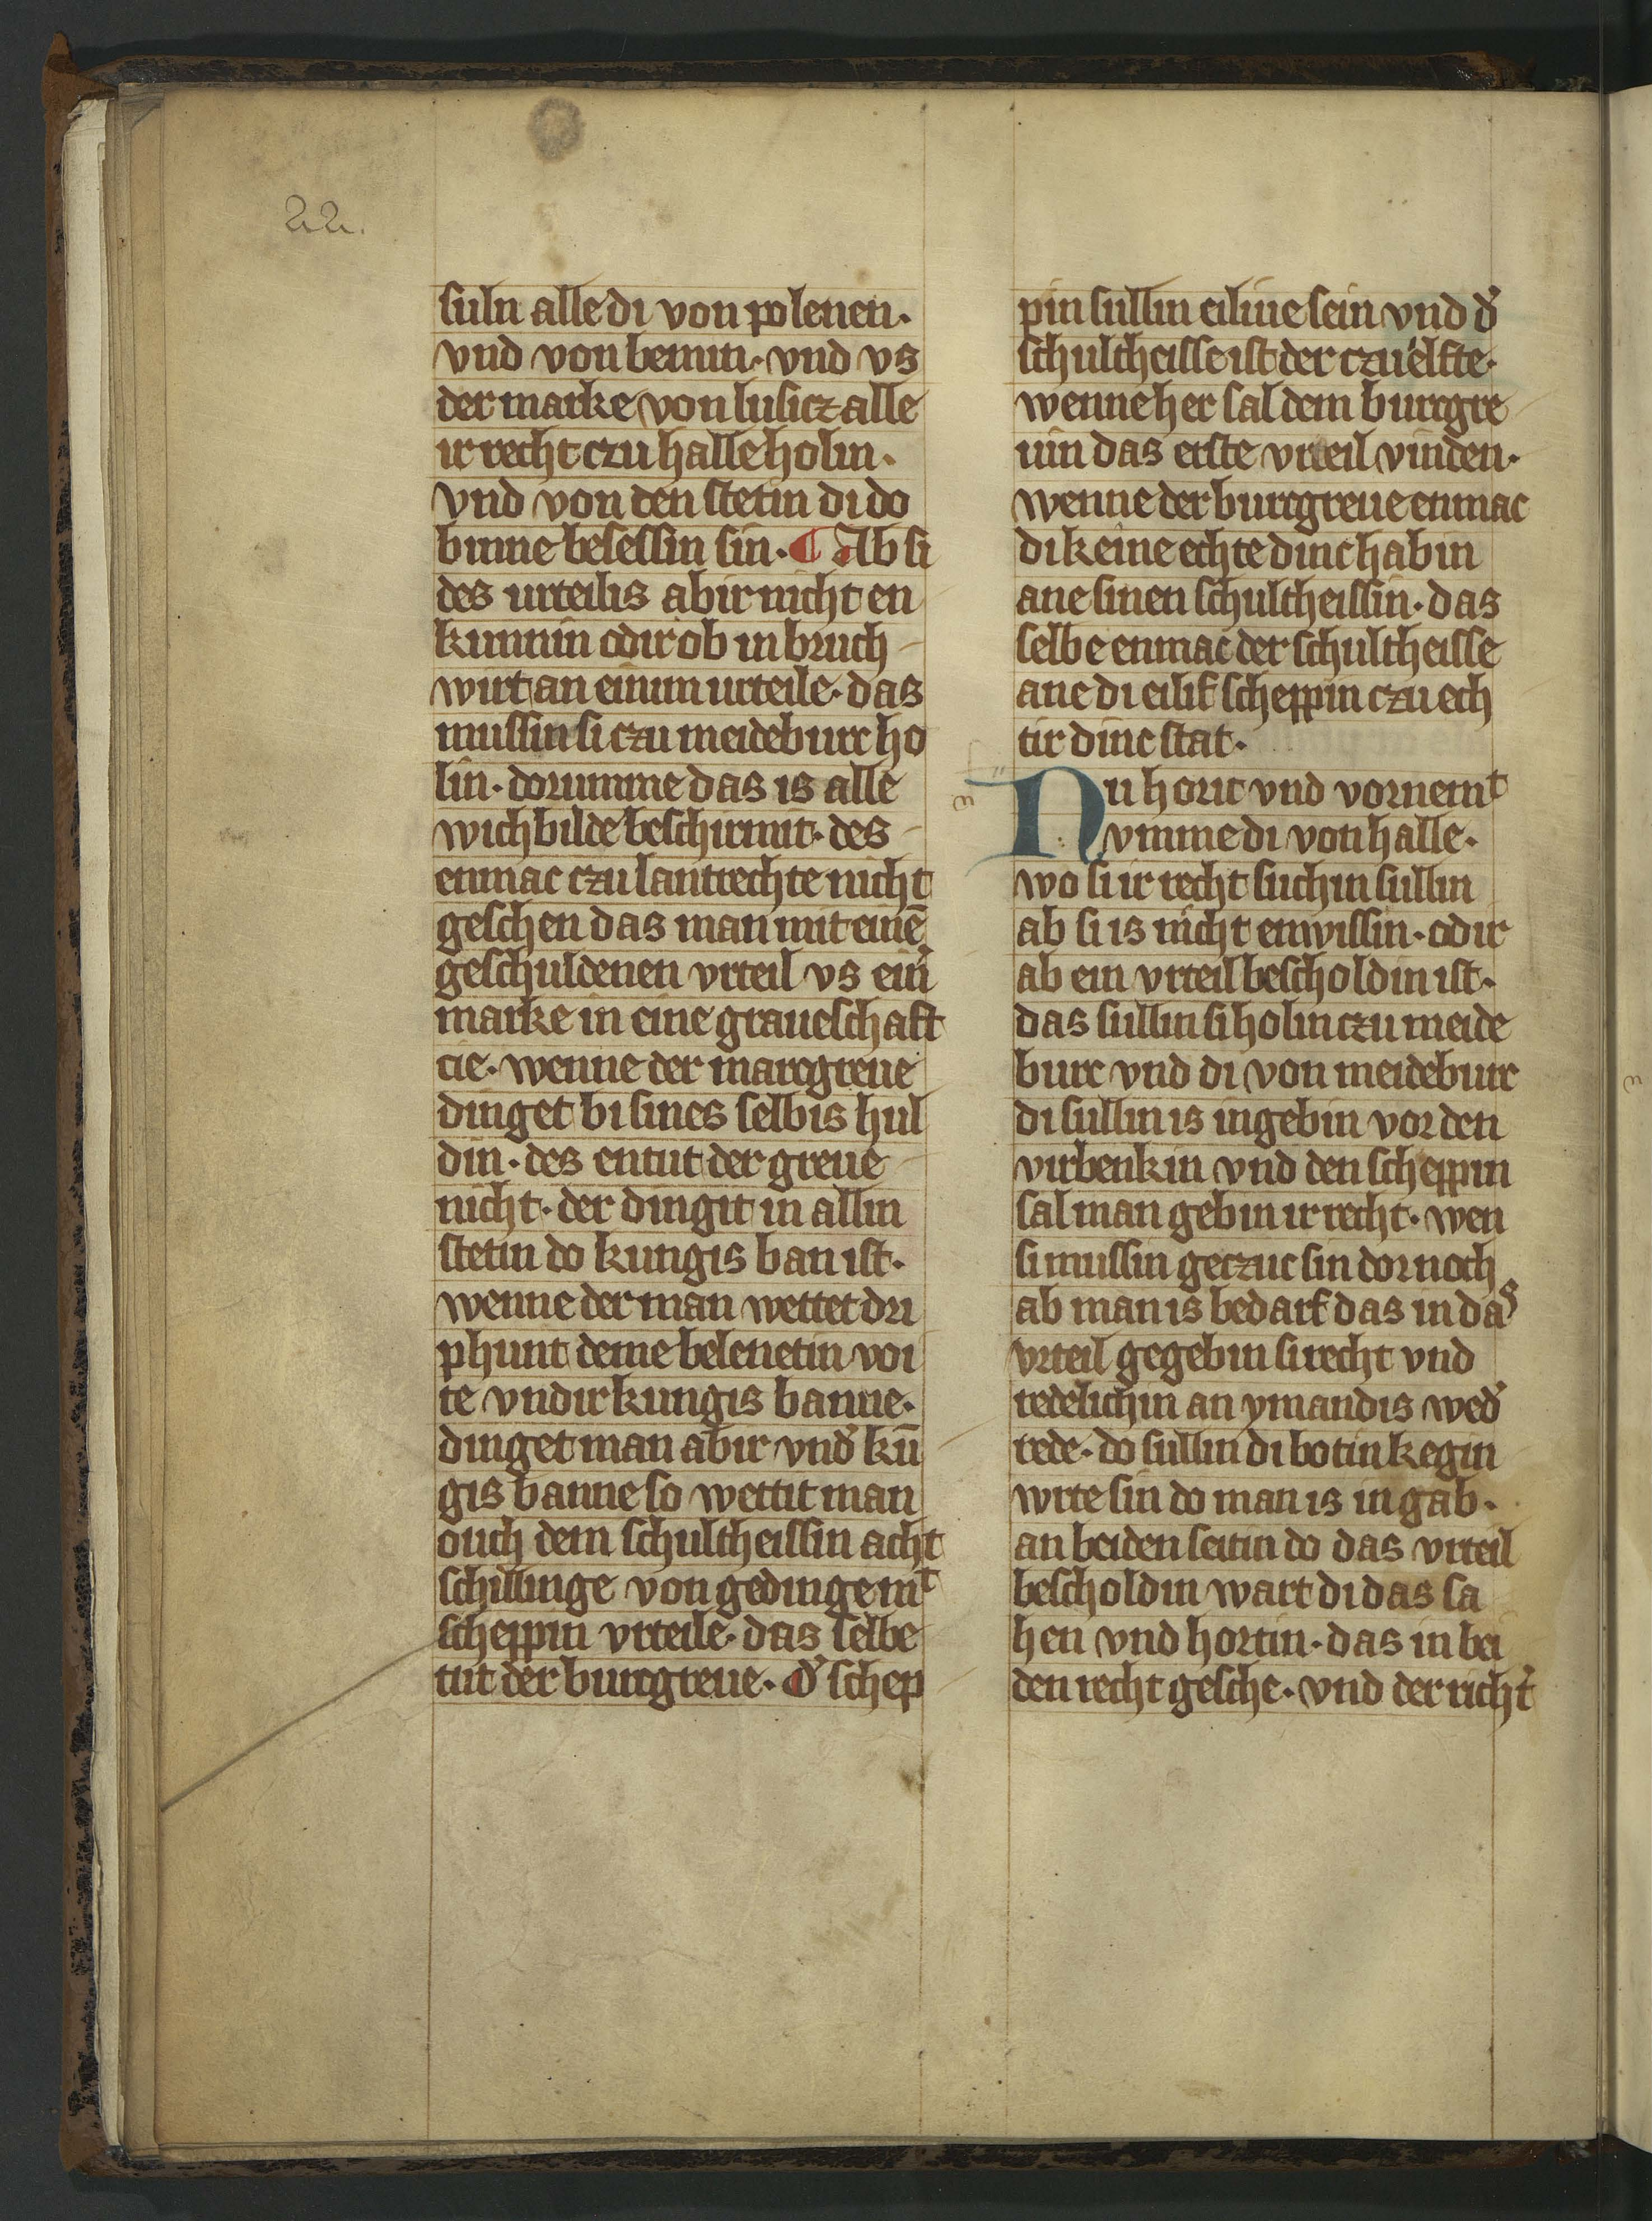 22.
suln alle di von polenen·
vnd von bemin· vnd vs
der marke von lusicz alle
ir recht czu halle holin·
vnd von den stetin di do
binne besessin sin· ¶ Ab si
des urteilis abir nicht en
kunnin odir ob in bruch
wirt an einim urteile· das
mussin si czu meideburc ho
lin· dorumme das is alle
wichbilde beschirmit· des
enmac czu lantrechte nicht
geschen das man mit einē
geschuldenen vrteil vs ein̉
marke in eine graueschaft
cie· wenne der marcgreue
dinget bi sines selbis hul
din· des entut der greue
nicht· der dingit in allin
stetin do kungis ban ist·
wenne der man wettet dri
phunt deme belenetin voi
te vndir kungis banne·
dinget man abir vnd̉ kū
gis banne so wettit man
ouch dem schultheissin acht
schillinge von gedinge mͭ
scheppin vrteile· das selbe
tut der burcgreue· d̉ schep
pin sullin eiliue sein vnd d̉
schultheisse ist der czuelfte·
wenne her sal dem burcgre
uin das erste vrteil vinden·
wenne der burcgreue enmac
dikeine echte dinc habin
ane sinen schultheissin· das
selbe enmac der schultheisse
ane di eilif scheppin czu ech
tir dinc stat·
Nu horit vnd vornemͭ
vmme di von halle·
wo si ir recht suchin sullin
ab si is nicht enwissin· odir
ab ein vrteil bescholdin ist·
das sullin si holin czu meide
burc vnd di von meideburc
di sullin is in gebin vor den
virbenkin vnd den scheppin
sal man gebin ir recht· wen
si mussin geczuc sin dornoch
ab man is bedarf das in das
vrteil gegebin si recht vnd
redelichin an ymandis wed̉
rede· do sullin di botin kegin
wrte sin do man is in gab·
an beiden seitin do das vrteil
bescholdin wart di das sa
hen vnd hortin· das in bei
den recht gesche· vnd der richt̉